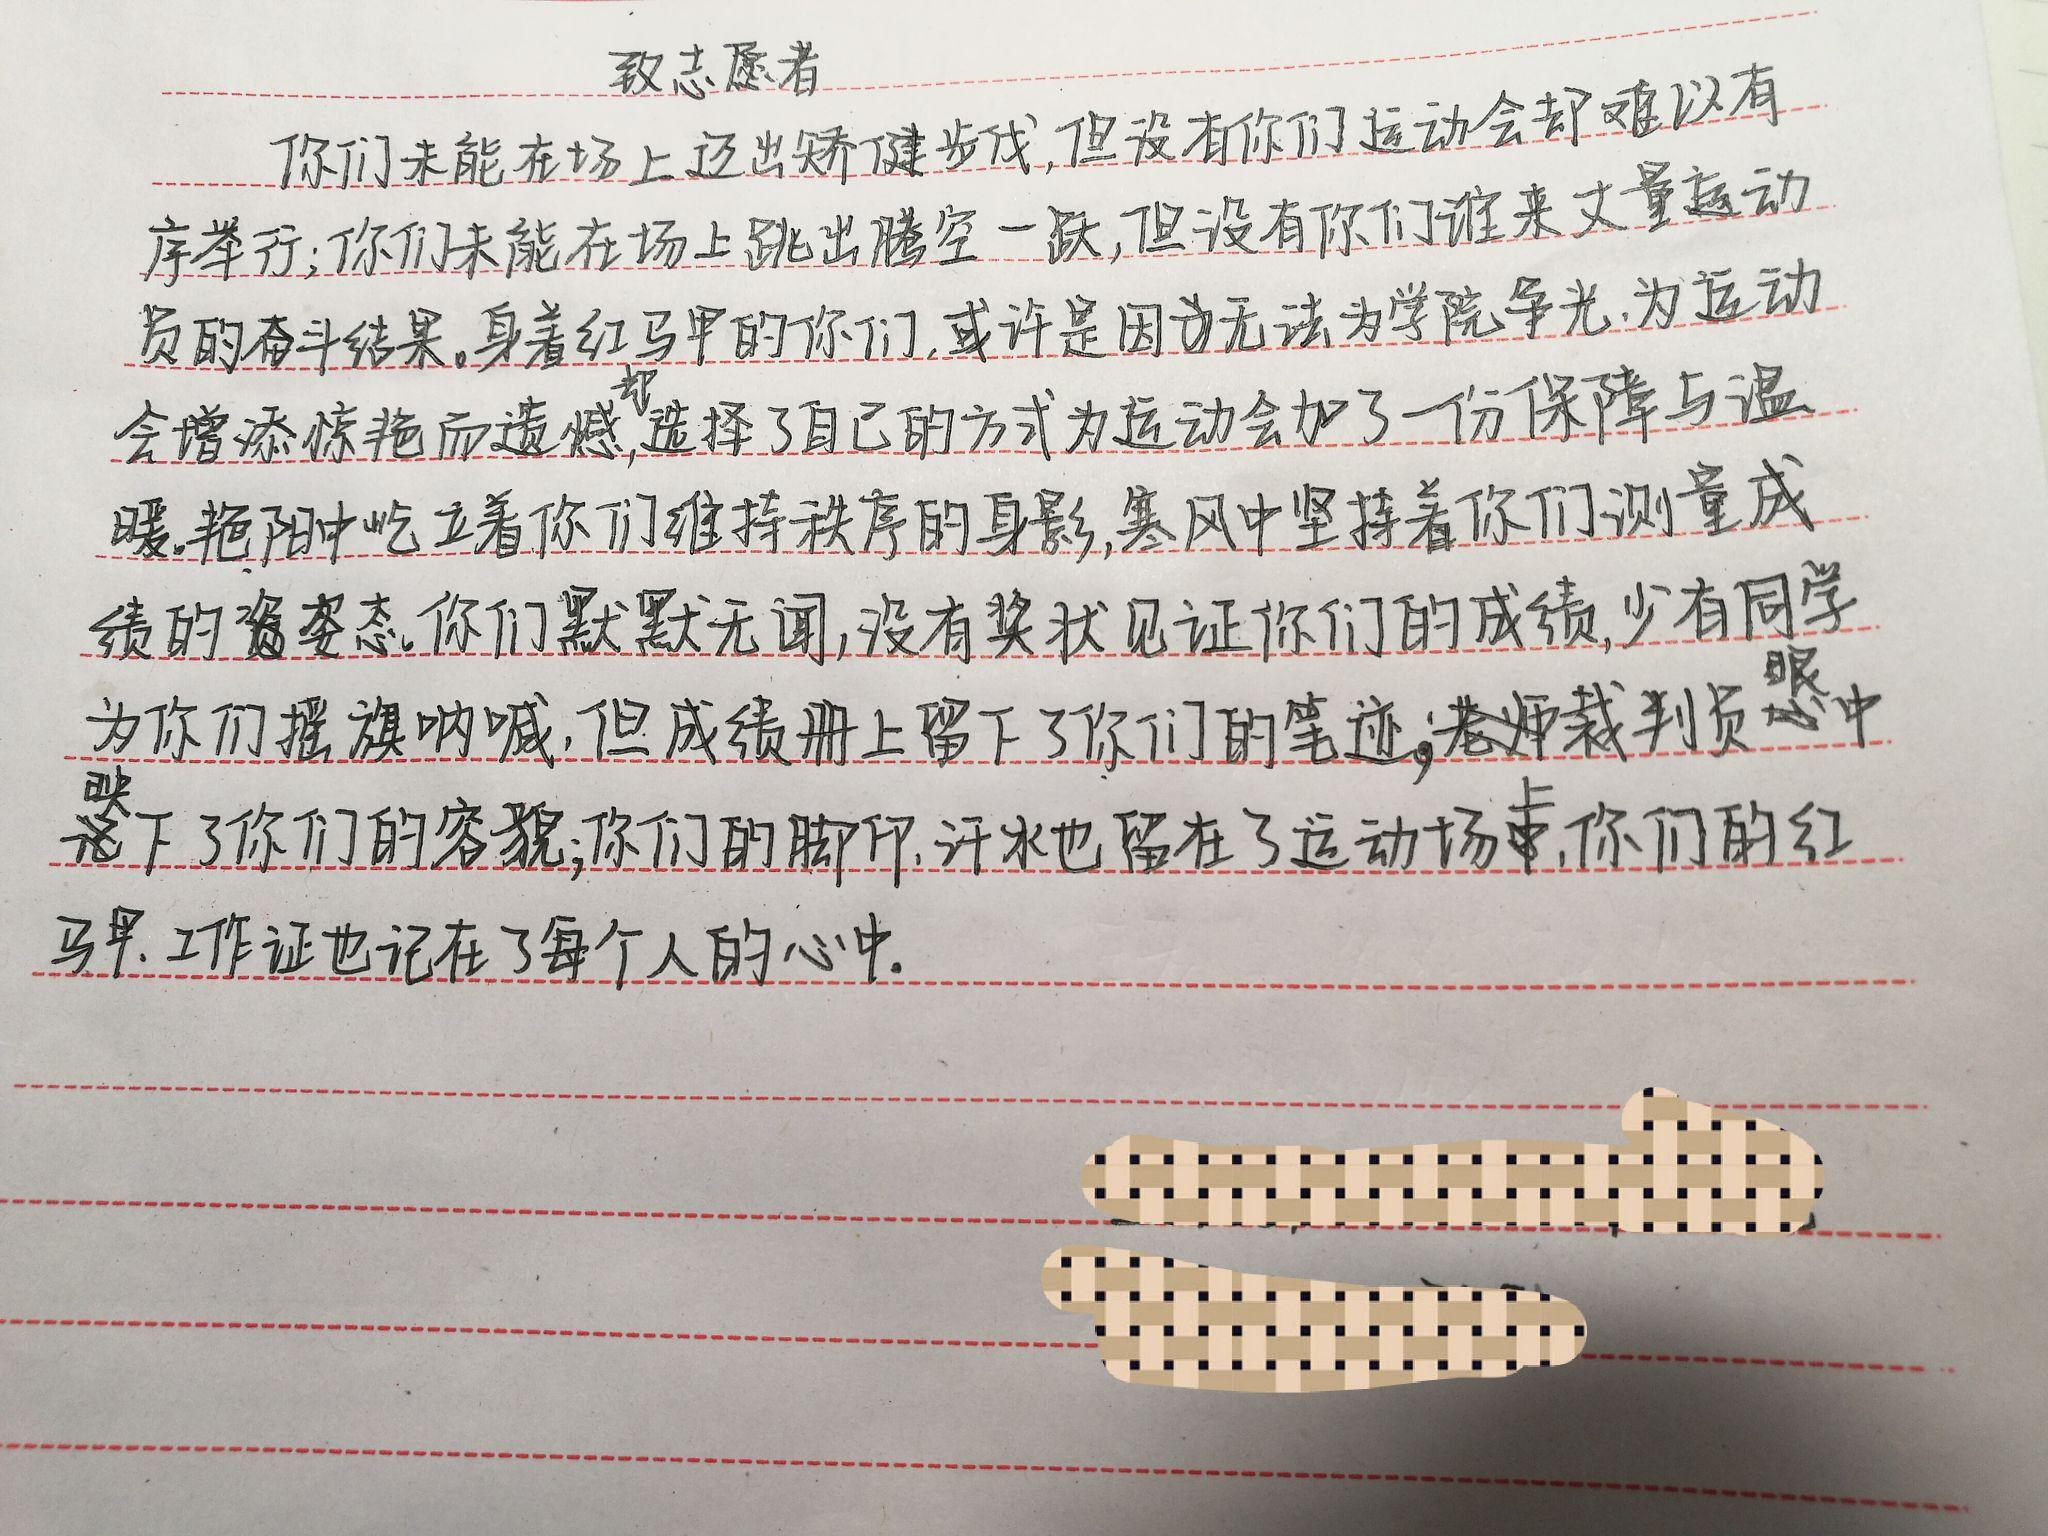 致志愿者
你们未能在场上迈出矫健步伐,但没有你们运动会却难以有
序举行;你们未能在场上跳出腾空一跃,但没有你们谁来丈量运动
员的奋斗结果。身着红马甲的你们,或许是因为无法为学院争光、为运动
会增添惊艳而遗憾,却选择了自己的方式为运动会加了一份保障与温
暖。艳阳中屹立着你们维持秩序的身影,寒风中坚持着你们测量成
绩的姿态。你们默默无闻,没有奖状见证你们的成绩,少有同学
为你们摇旗呐喊,但成绩册上留下了你们的笔迹;裁判员眼中
映下了你们的容貌;你们的脚印、汗水也留在了运动场上,你们的红
马甲、工作证也记在了每个人的心中。